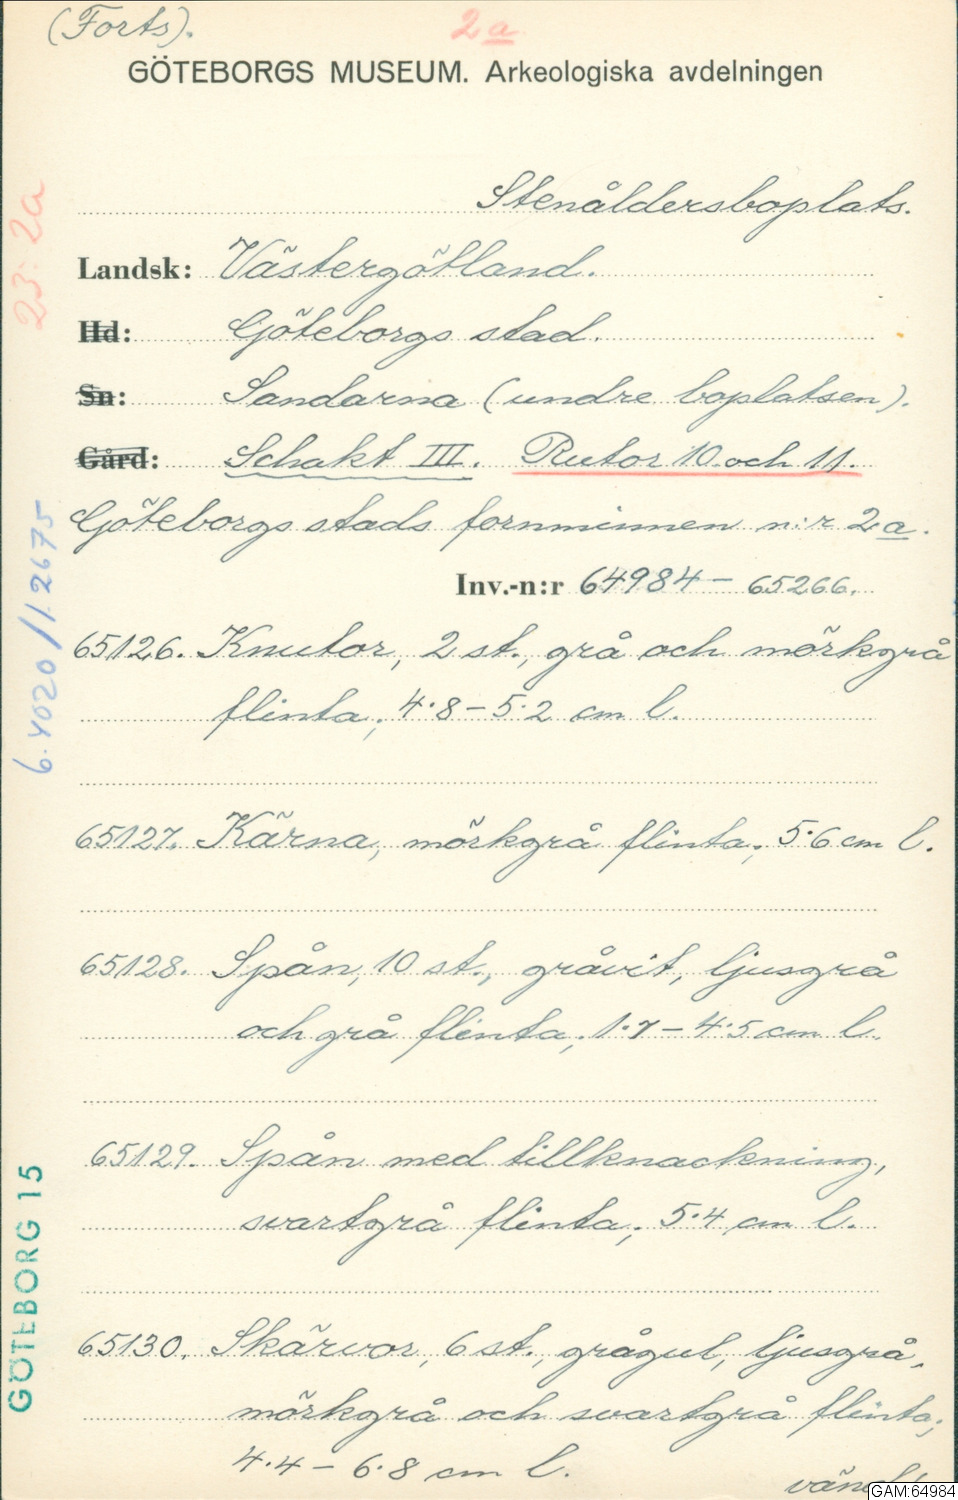 (Forts).
2a
GÖTEBORGS MUSEUM. Arkeologiska avdelningen
Stenåldersboplats.
Landsk: Västergötland.
Hd: Göteborgs stad.
Sn: Sandarna (undre boplatsen).
Gård: Schakt III. Rutor 10 och 11.
Göteborgs stads fornminnen n:r 2a.
Inv.-n:r 64984 – 65266.
65126. Knutor, 2 st., grå och mörkgrå
flinta; 4·8 – 5·2 cm l.
65127. Kärna, mörkgrå flinta; 5·6 cm l.
65128. Spån, 10 st., gråvit, ljusgrå
och grå flinta; 1·7 – 4·5 cm l.
65129. Spån med tillknackning,
svartgrå flinta; 5·4 cm l.
65130. Skärvor, 6 st., grågul, ljusgrå,
mörkgrå och svartgrå flinta;
4·4 – 6·8 cm l.
vänd!
GAM:64984
23:2a
6.4020/1.2675
GÖTEBORG 15